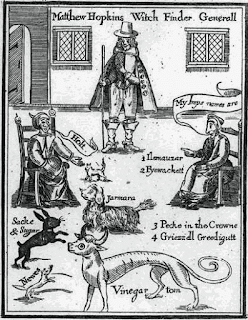 Matthew Hopkins Witch Finder Generall
My Imps names are
Holt
1 Ilemauzar
2 Pyewackett
Jarmara
3 Pecke in the Crowne
4 Griezzell Greedigutt
Sacke
& Sugar
Newes
Vinegar tom